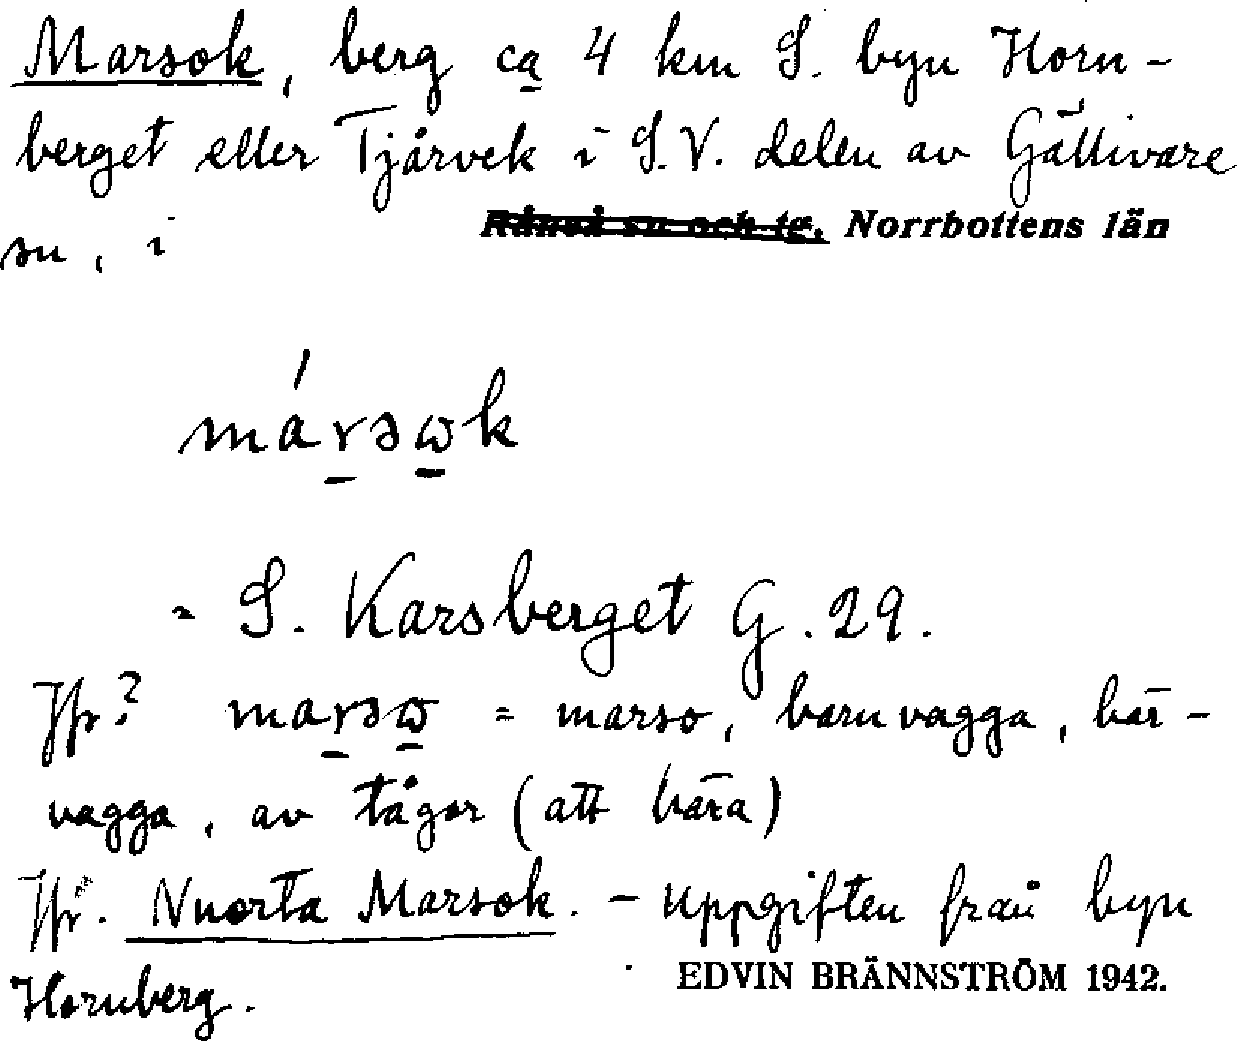 Marsok, berg ca 4 km S. byn Horn-
berget eller Tjårvek i S.V. delen av Gällivare
sn, i Råneå sn och tg. Norrbottens län
mársωk
= S. Karsberget G. 29.
Jfr? marsω = marso, barnvagga, bär-
vagga, av tågor (att bära)
Jfr. Nuorta Marsok. - Uppgiften från byn
Hornberg. EDVIN BRÄNNSTRÖM 1942.